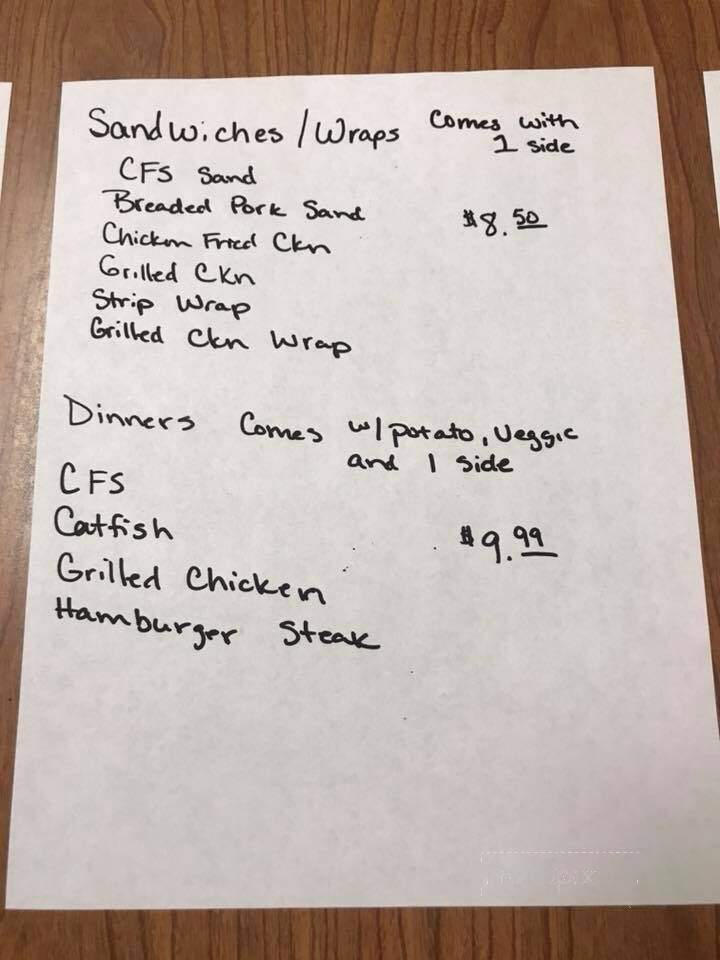 Sandwiches / Wraps Comes with
1 side
CFS Sand
Breaded Pork Sand $8.50
Chicken Fried Ckn
Grilled Ckn
Strip Wrap
Grilled Ckn Wrap
Dinners Comes w/ potato, Veggie
and 1 side
CFS
Catfish $9.99
Grilled Chicken
Hamburger Steak